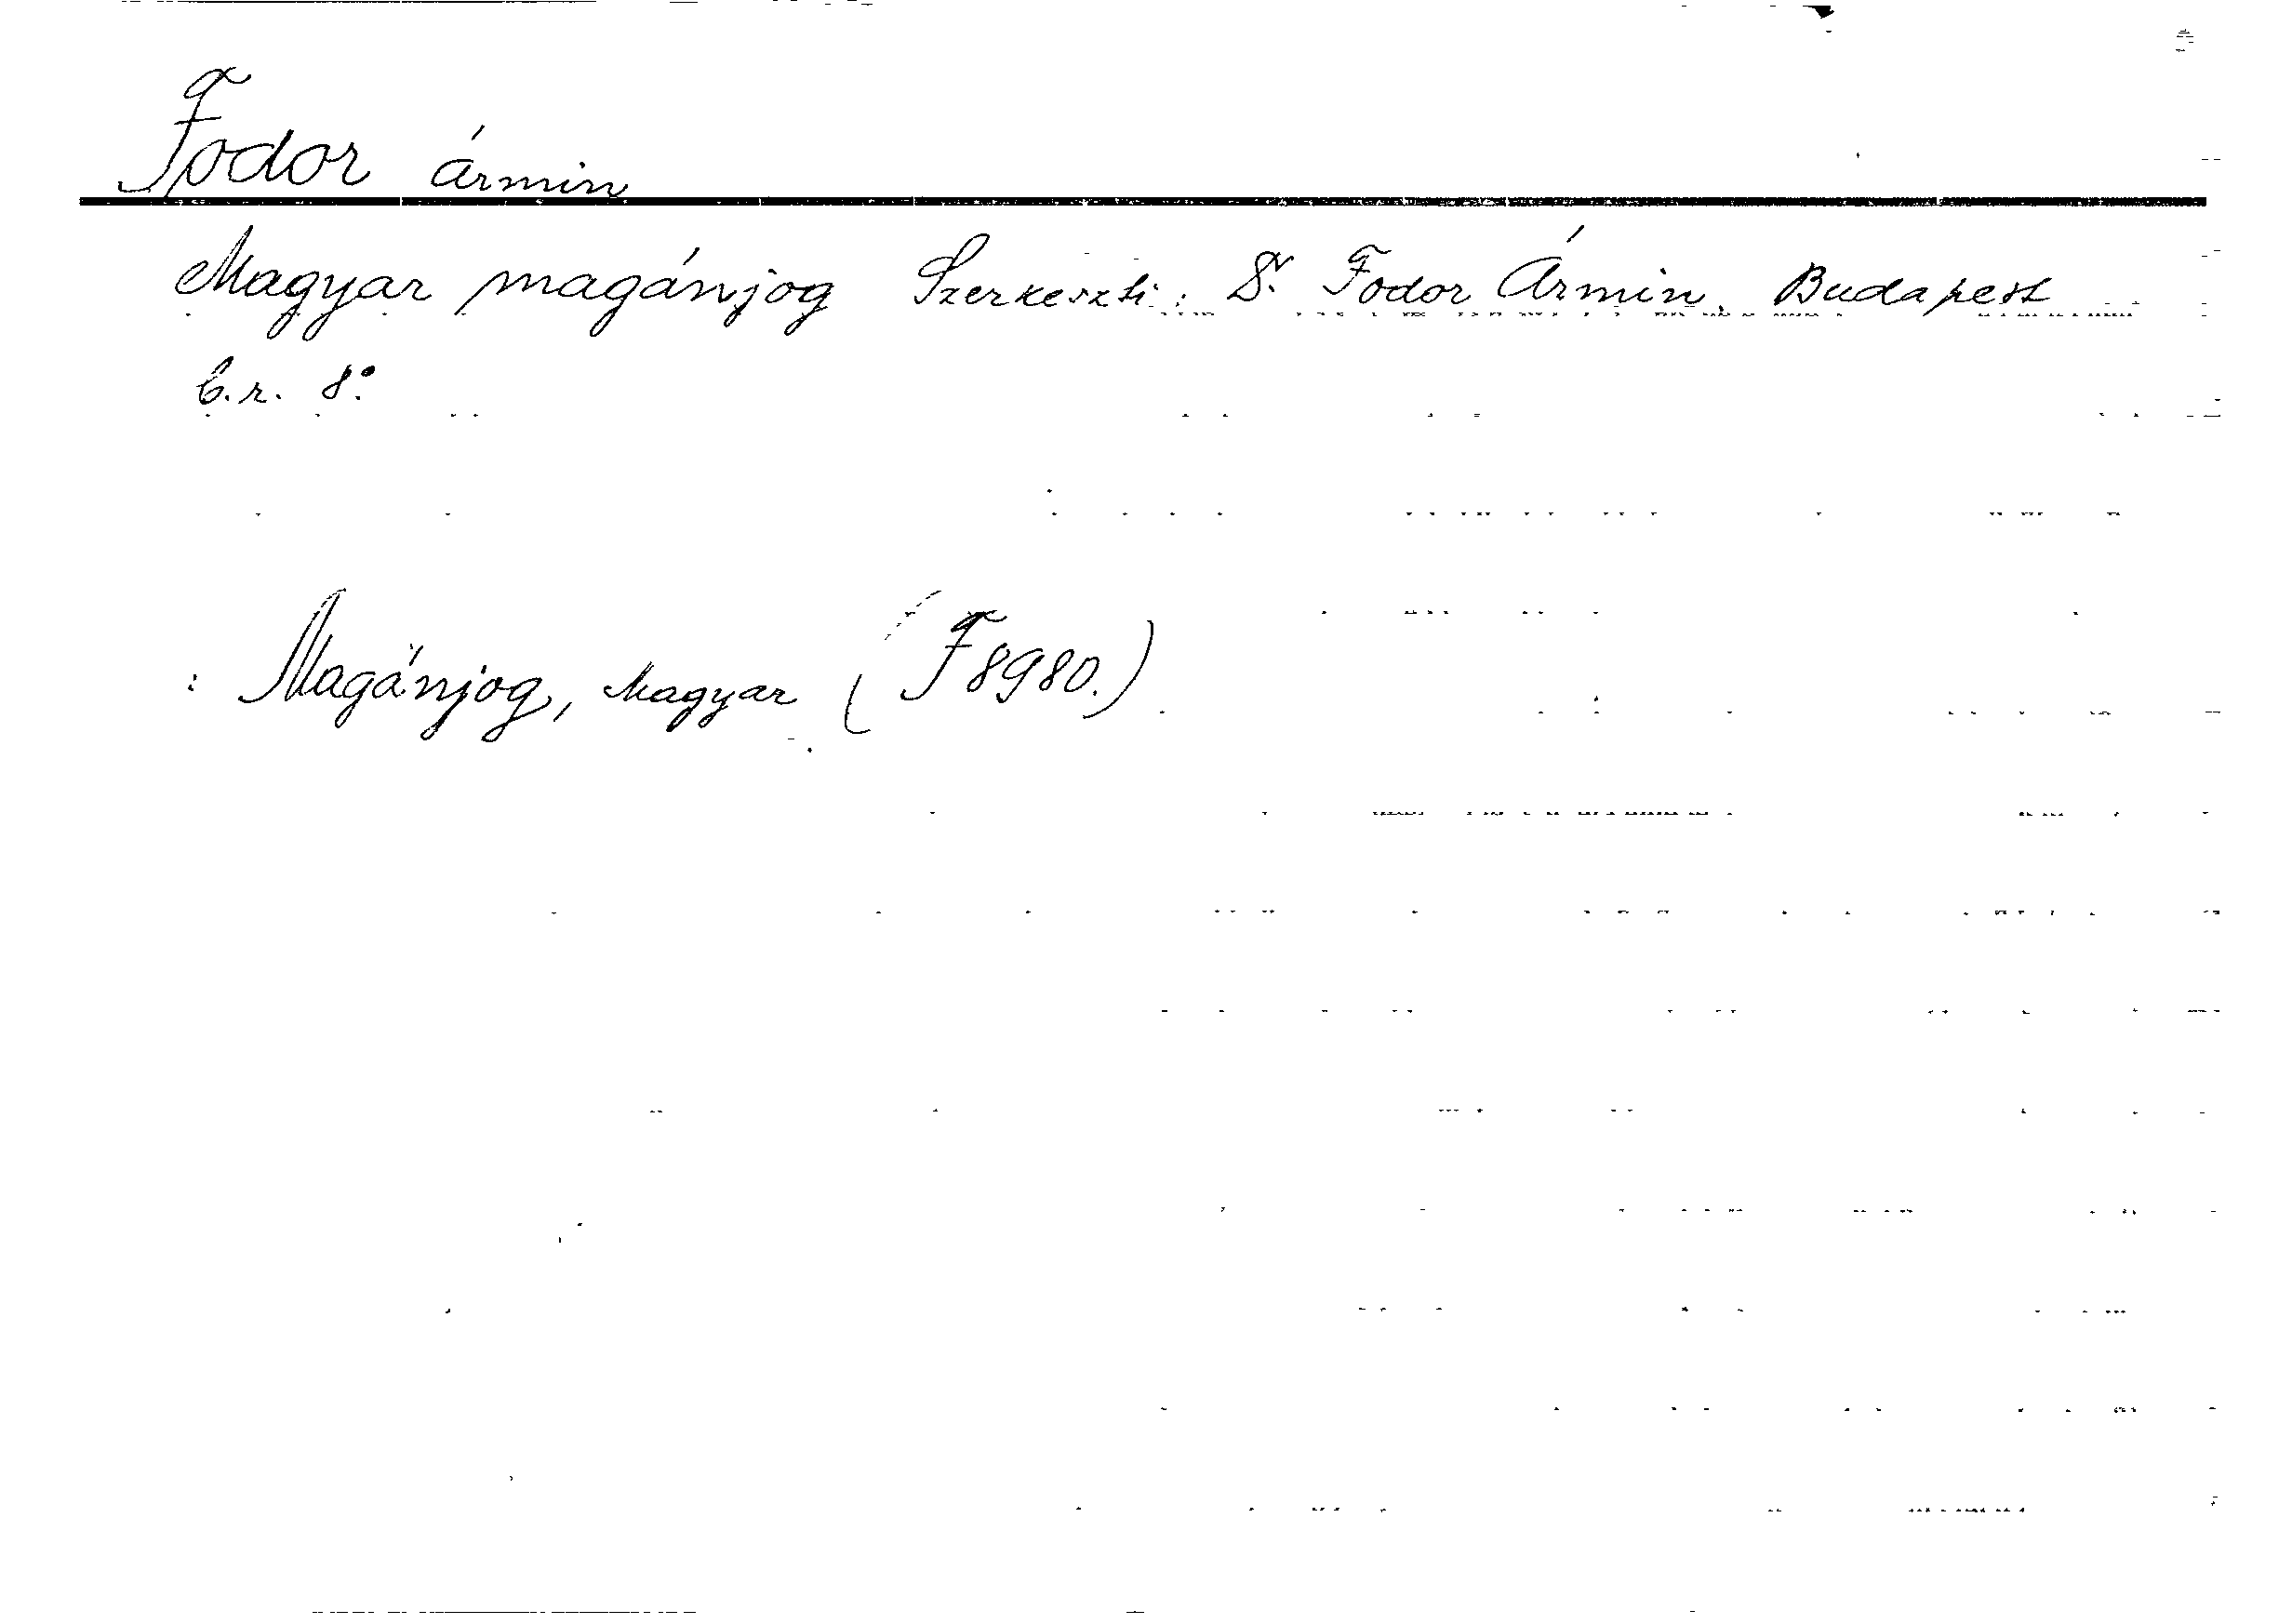 Fodor Ármin
Magyar magánjog Szerkeszti: Dr. Fodor Ármin. Budapest
É.n. 8°.
: Magánjog, Magyar (F8980.)